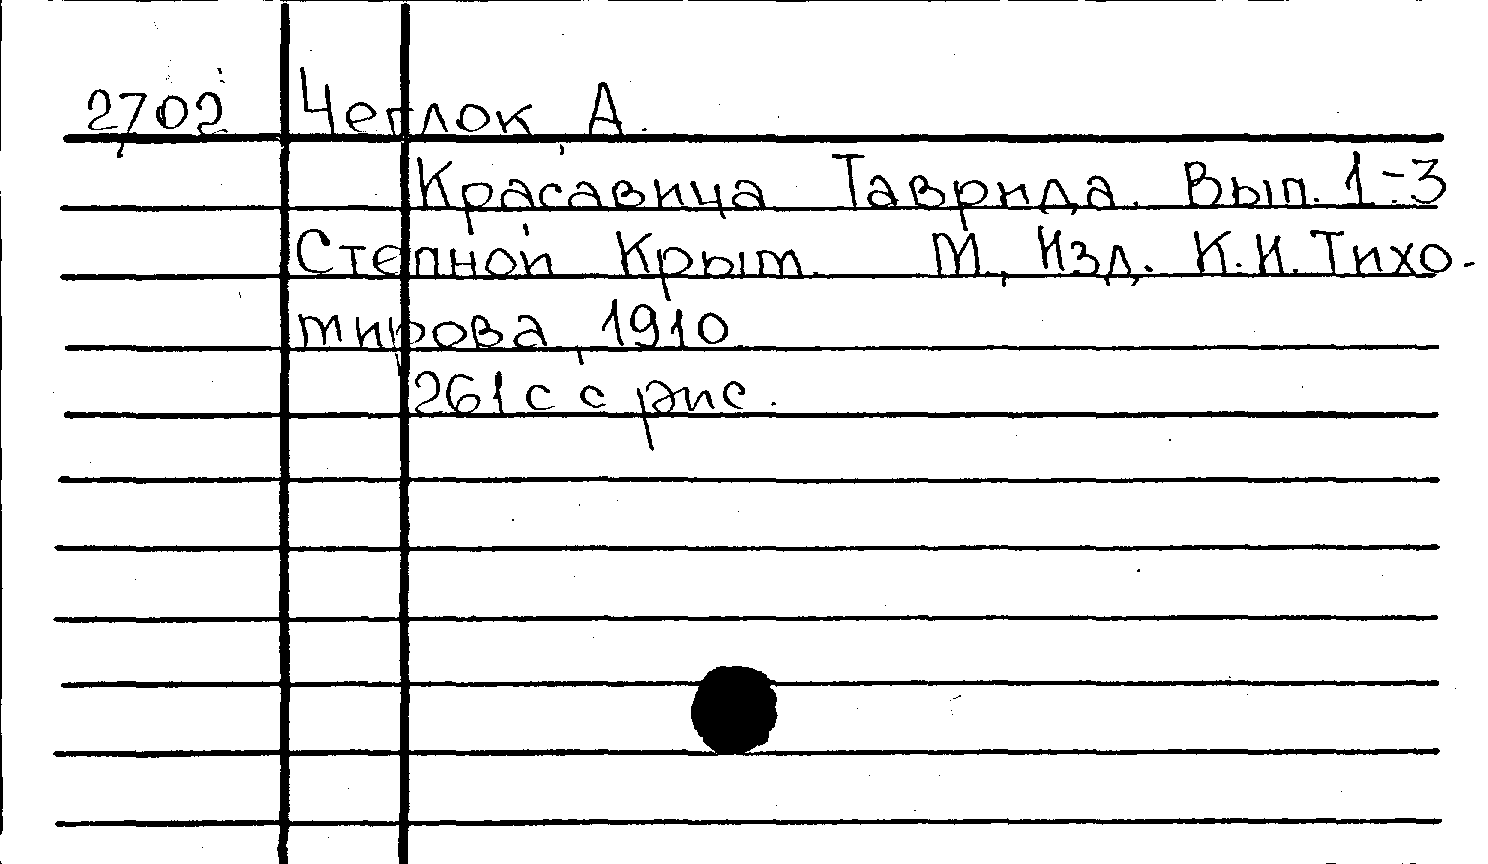 2702 Чеглок А.
Красавица Таврида. Вып. 1-3
Степной Крым. М., Изд. К.И. Тихо-
мирова, 1910
261 с с рис.